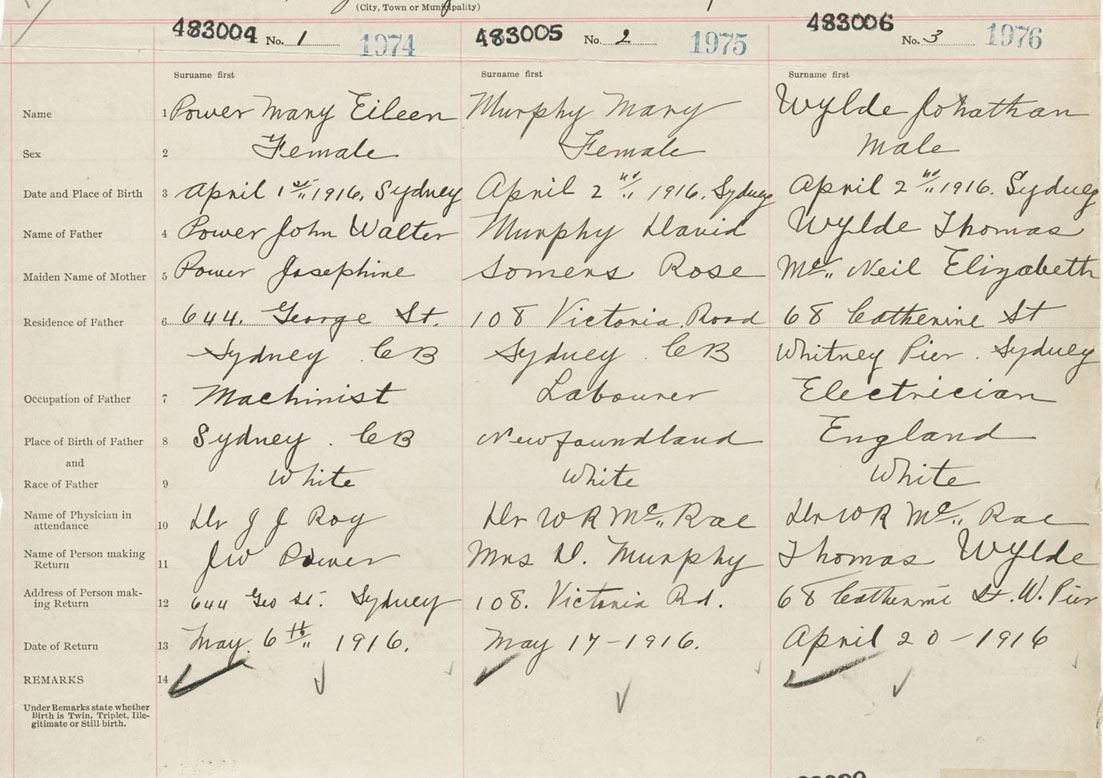 (City, Town or Municipality)
483004 No. 1 1974 483005 No. 2 1975 483006 No. 3 1976
Surname first Surname first Surname first
Name 1 Power Mary Eileen Murphy Mary Wylde Johathan
Sex 2 Female Female Male
Date and Place of Birth 3 April 1st 1916, Sydney April 2nd 1916, Sydney April 2nd 1916. Sydney
Name of Father 4 Power John Walter Murphy David Wylde Thomas
Maiden Name of Mother 5 Power Josephine Somers Rose Mc Neil Elizabeth
Residence of Father 6 644. George St. 108 Victoria Road 68 Catherine St
Sydney CB Sydney CB Whitney Pier. Sydney
Occupation of Father 7 Machinist Labourer Electrician
Place of Birth of Father 8 Sydney. CB Newfoundland England
and
Race of Father 9 White White White
Name of Physician in
attendance 10 Dr J J Roy Dr W R Mc Rae Dr W R Mc Rae
Name of Person making
Return 11 JW Power Mrs D. Murphy Thomas Wylde
Address of Person mak-
ing Return 12 644 Geo St. Sydney 108. Victoria Rd. 68 Catherine St. W. Pier
Date of Return 13 May. 6th 1916. May 17-1916. April 20-1916
REMARKS 14
Under Remarks state whether
Birth is Twin, Triplet, Ille-
gitimate or Still birth.